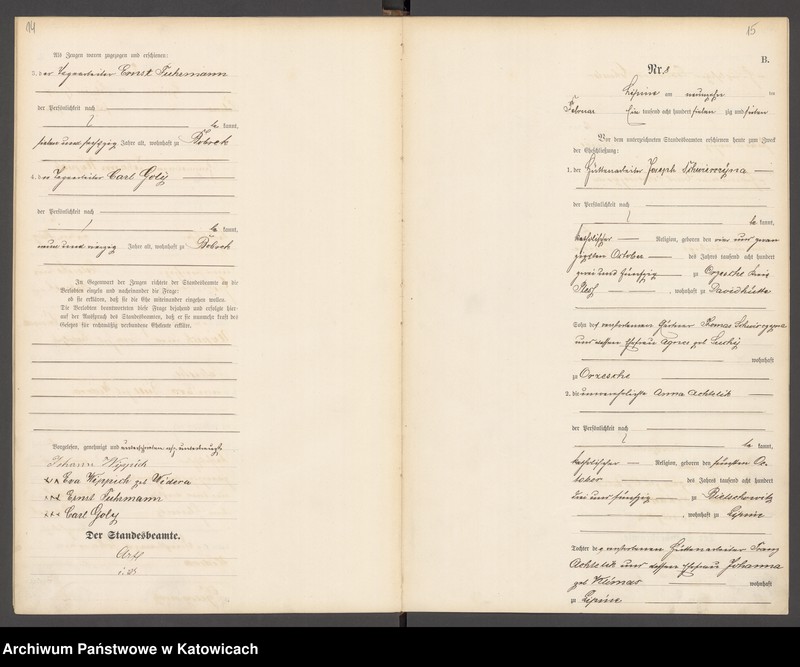 14
Als Zeugen waren zugezogen und erschienen:
3. der Tagearbeiter Ernst Fuhrmann
der Persönlichkeit nach
be kannt,
sieben und fünfzig Jahre alt, wohnhaft zu Bobrek
4. der Tagearbeiter Carl Goly
der Persönlichkeit nach
be kannt,
neun und vierzig Jahre alt, wohnhaft zu Bobrek
In Gegenwart der Zeugen richtete der Standesbeamte an die
Verlobten einzeln und nacheinander die Frage:
ob sie erklären, daß sie die Ehe miteinander eingehen wollen.
Die Verlobten beantworteten diese Frage bejahend und erfolgte hier-
auf der Ausspruch des Standesbeamten, daß er sie nunmehr kraft des
Gesetzes für rechtmäßig verbundene Eheleute erkläre.
Vorgelesen, genehmigt und
Johann Wippich
Eva Wippich geb Widera
Ernst Fuhrmann
Carl Goly
Der Standesbeamte.
15
B.
Nr. 1
Lipine am neunzehn ten
Februar Ein tausend acht hundert sieben zig und sieben
Vor dem unterzeichneten Standesbeamten erschienen heute zum Zweck
der Eheschließung:
1. der Hüttenarbeiter Joseph
der Persönlichkeit nach
be kannt,
katholischer Religion, geboren den vier und zwan
zigsten October des Jahres tausend acht hundert
zwei und fünfzig zu Orzesche Kreis
Pleß, wohnhaft zu Davidhütte
Sohn des verstorbenen Gärtner Thomas
und dessen Ehefrau Agnes geb
wohnhaft
zu Orzesche
2. die unverehelichte Anna Achtelik
der Persönlichkeit nach
be kannt,
katholischer Religion, geboren den fünften Oc-
tober des Jahres tausend acht hundert
und fünfzig zu Bielschowitz
, wohnhaft zu Lipine
Tochter des verstorbenen Hüttenarbeiter Franz
Achtelik und dessen Ehefrau Johanna
geb Klimas wohnhaft
zu Lipine
Archiwum Państwowe w Katowicach